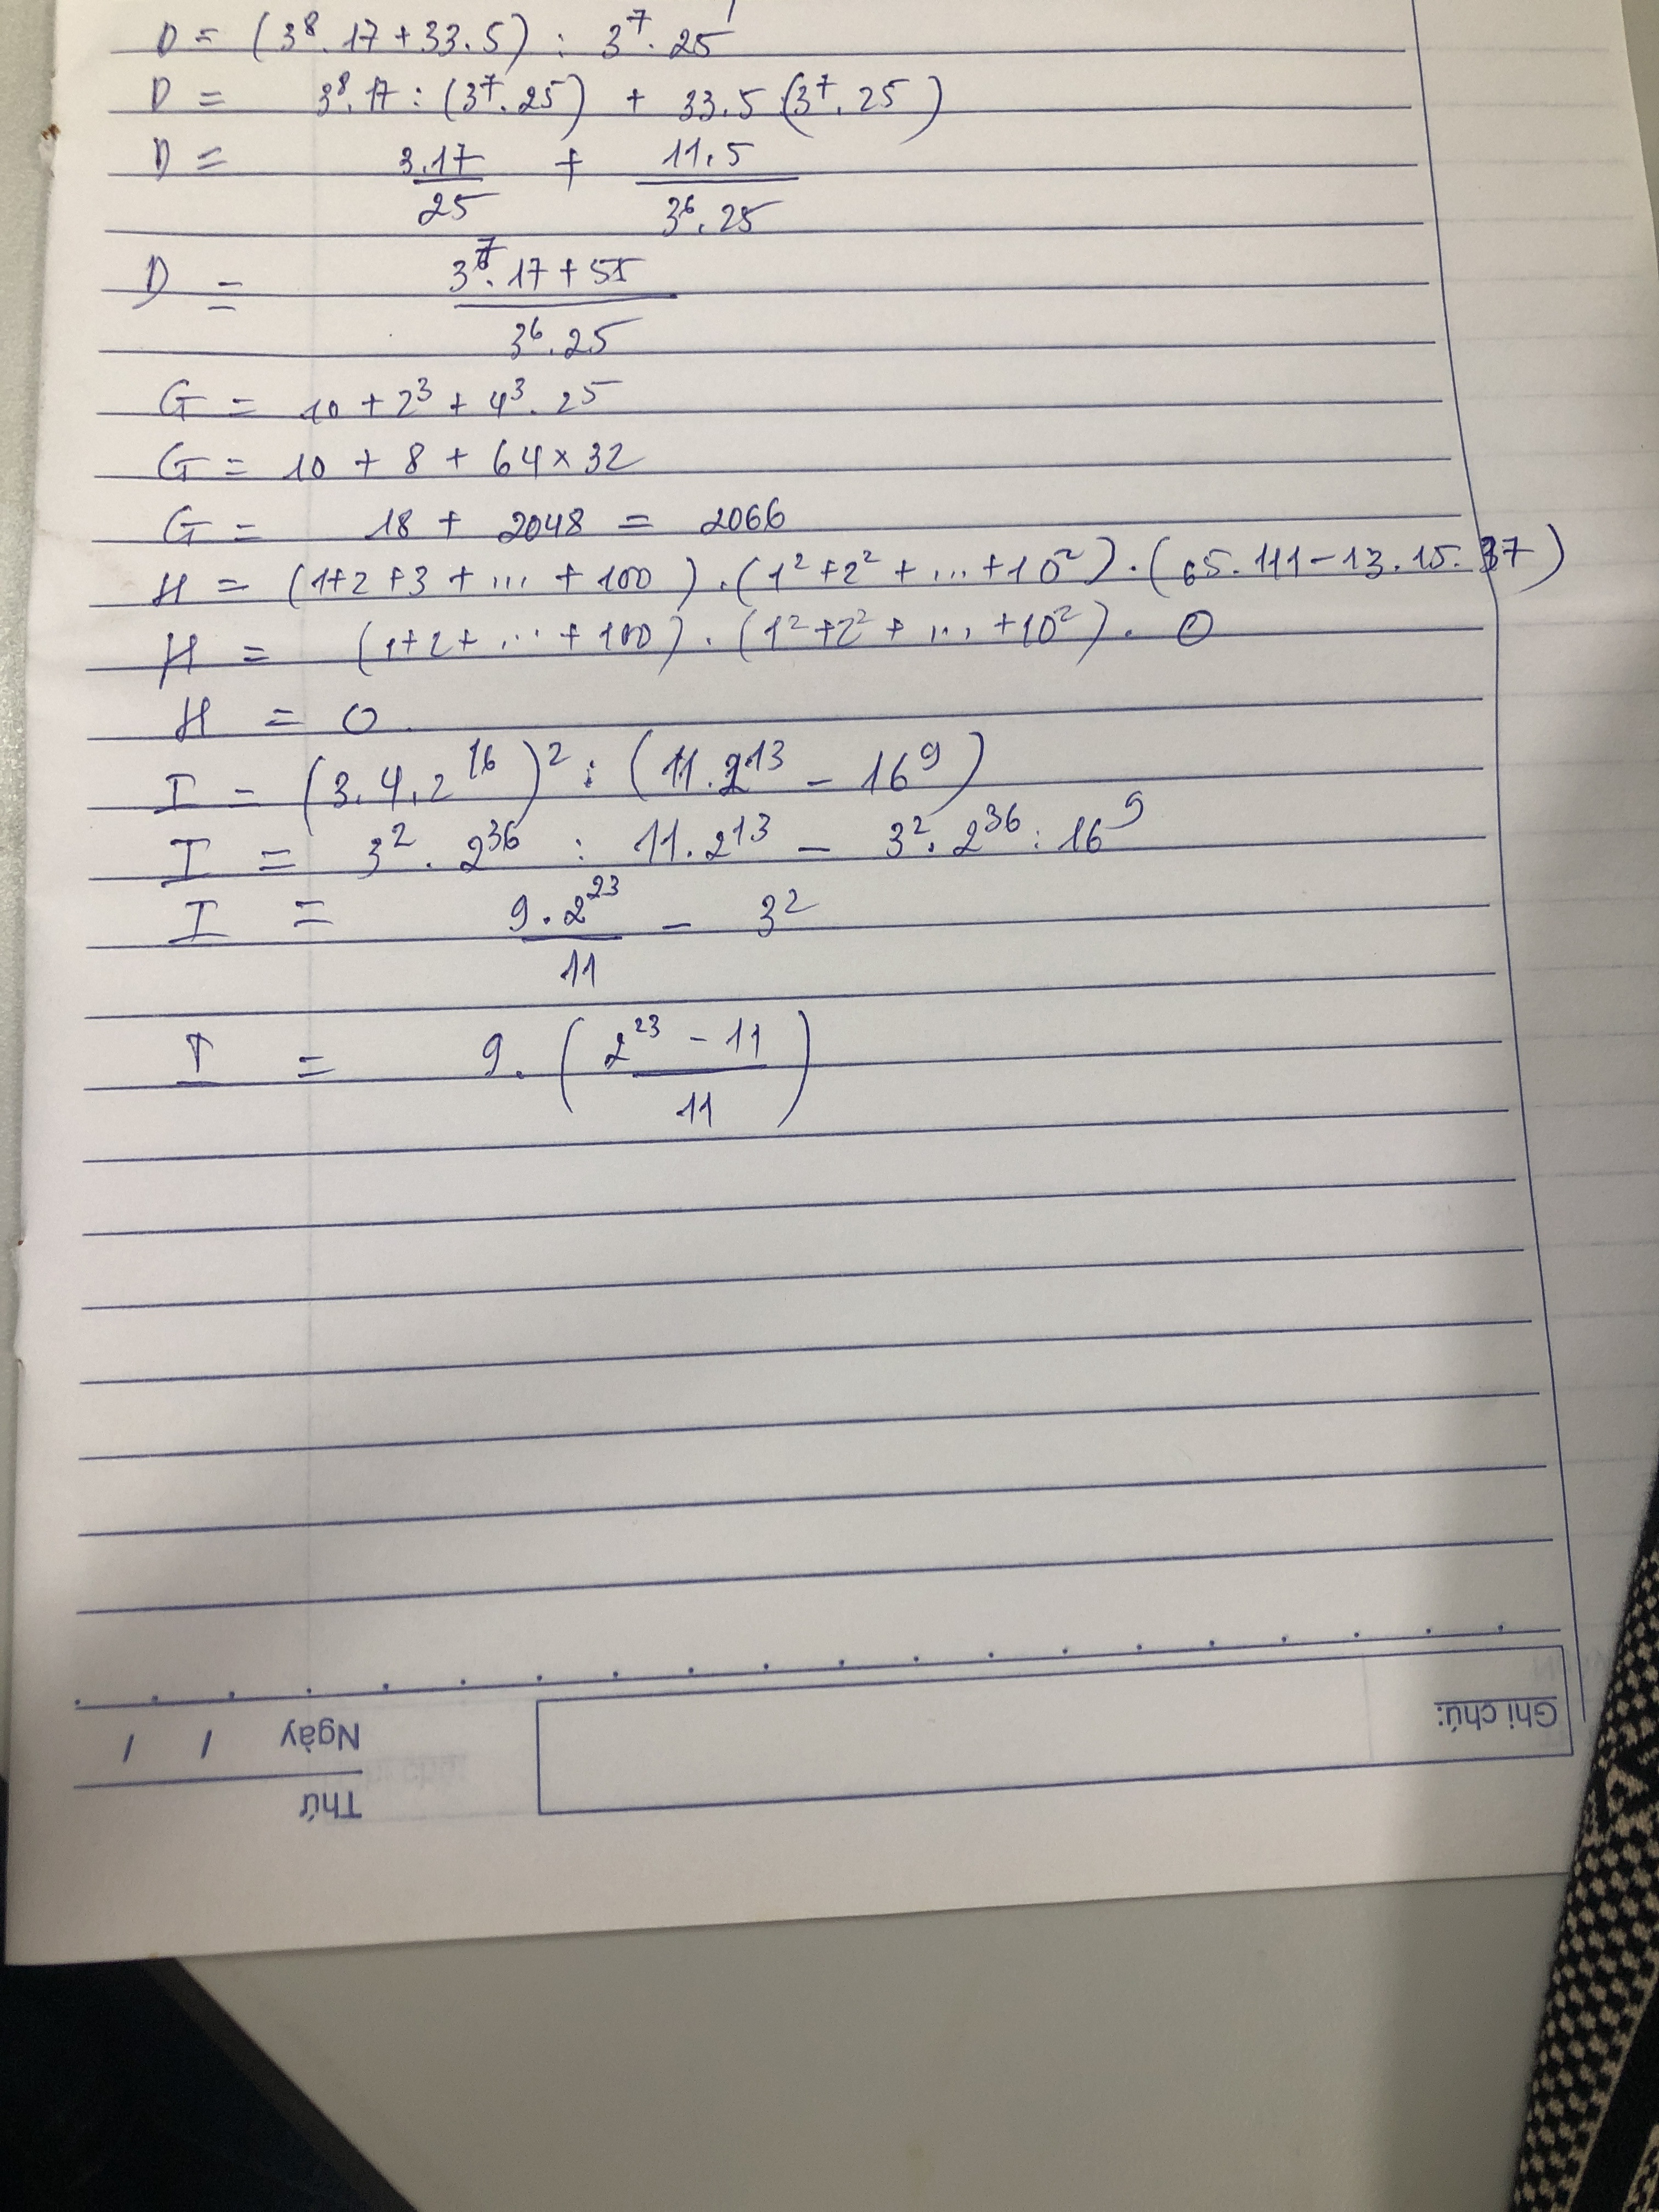 D = (3⁸.17+33.5) : 3⁷.25
D = 3⁸.17 : (3⁷.25) + 33.5 (3⁷.25)
D = 3.17/25 + 11.5/3⁶.25
D = 3⁷.17+55/3⁶.25
G = 10 + 2³ + 4³.2⁵
G = 10 + 8 + 64 × 32
G = 18 + 2048 = 2066
H = (1+2+3+...+100).(1²+2²+...+10²).(65.111-13.15.37)
H = (1+2+...+100).(1²+2²+...+10²).0
H = 0.
I = (3.4.2¹⁶)² : (11.2¹³ - 16⁹)
I = 3².2³⁶ : 11.2¹³ - 3².2³⁶ : 16⁹
I = 9.2²³/11 - 3²
I = 9.(2²³ - 11/11)
Ghi chú:
Ngày / /
Thứ